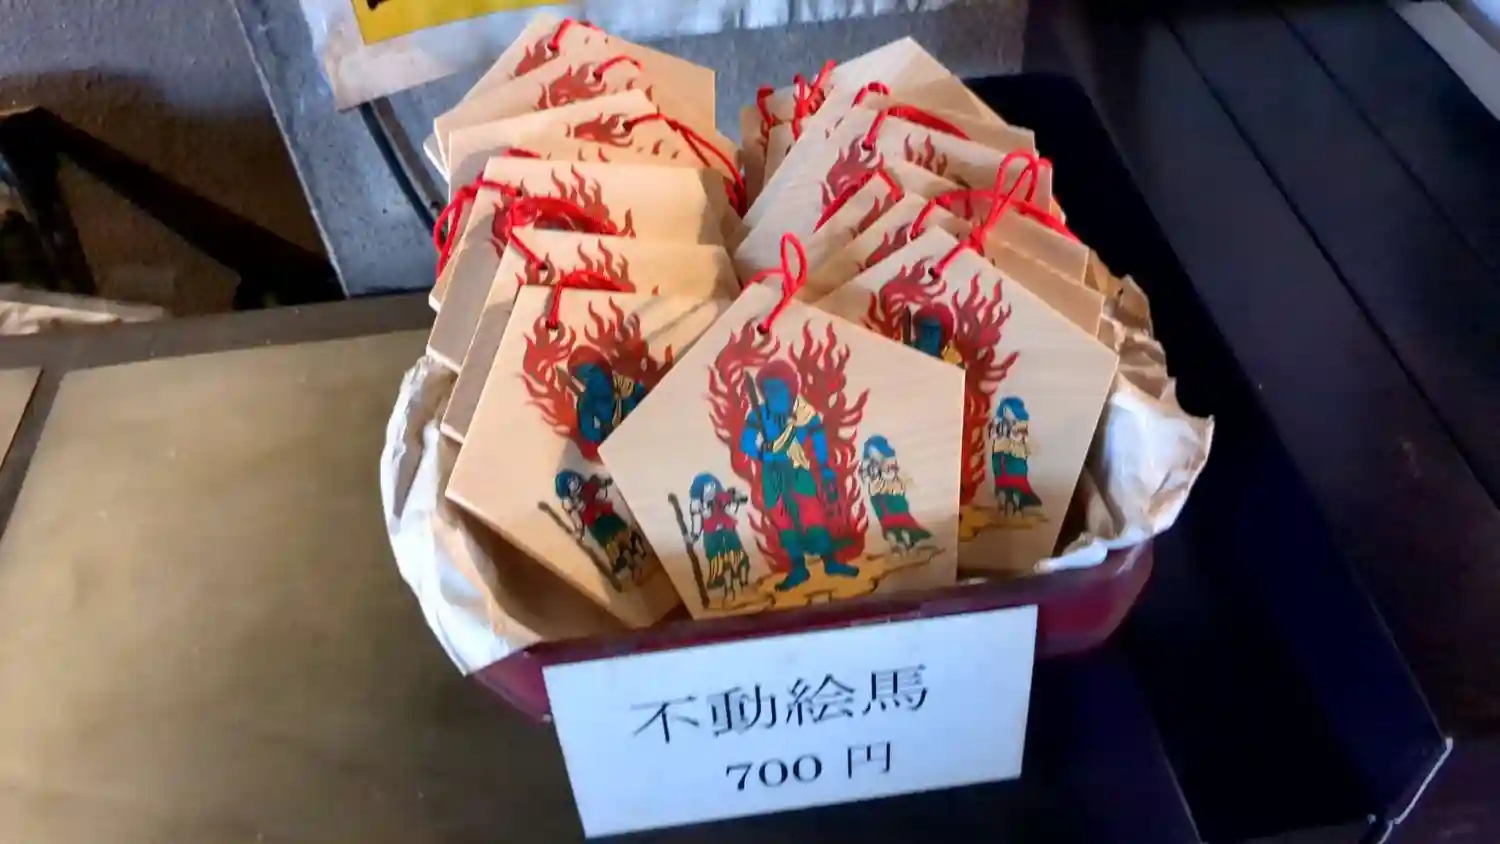 不動絵馬
700 円